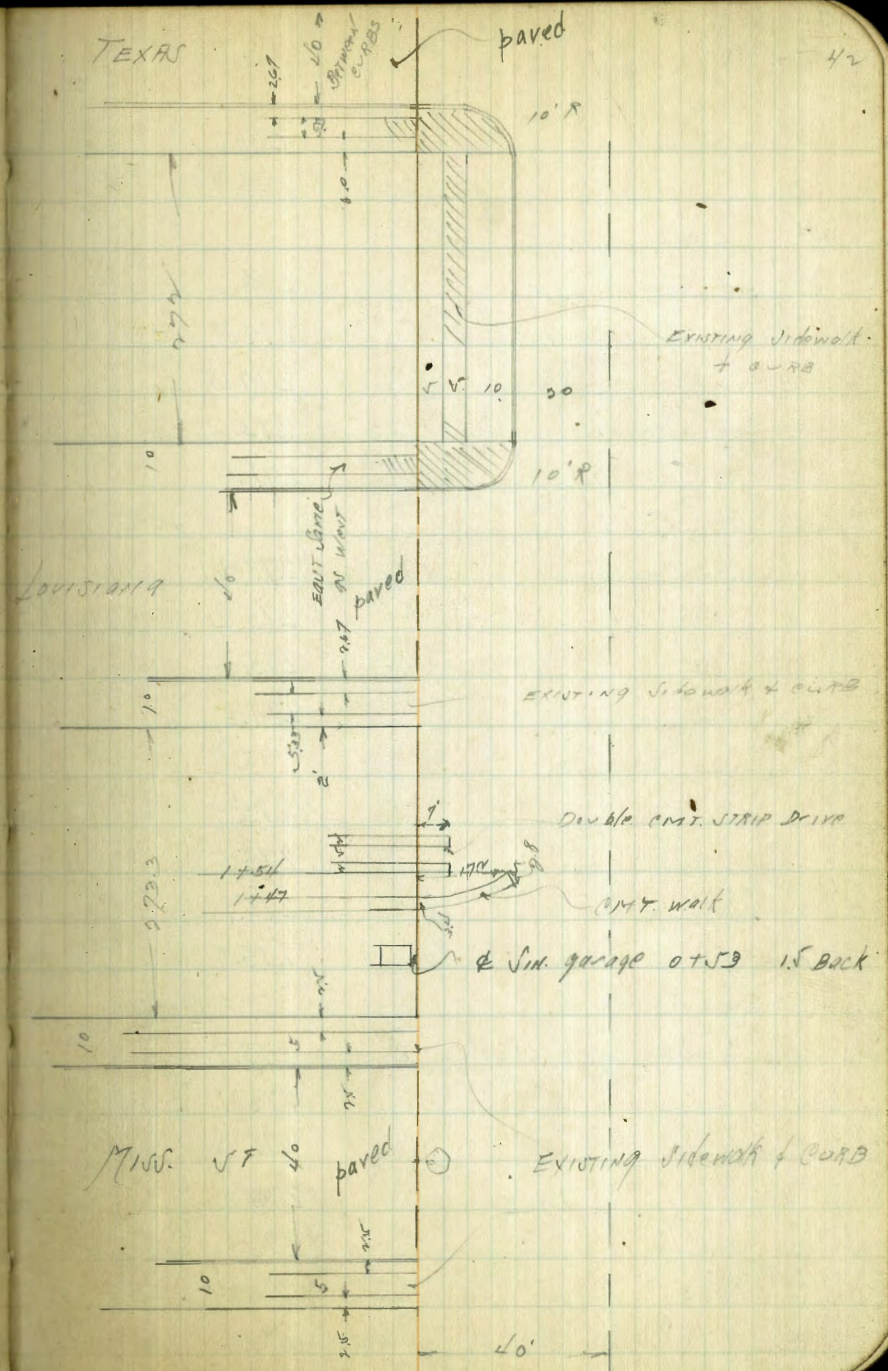 TEXAS
paved
42
2.67
40
BETWEEN
CURBS
10' R
6.0
272
EXISTING Sidewalk
+ CURB
5 5 10 30
10
10' R
EAST Same
AS WEST
paved
Louisiana
40
2.67
10
EXISTING Sidewalk & CURB
5.33
2'
7'
Double CMT. STRIP Drive
1+54
1+47
17.2
CMT. walk
273.3
₵ SIN. garage 0+53 1.5 Back
2.5
10
5
2.5
MISS. ST
40
paved
EXISTING Sidewalk & CURB
2.5
10
5
2.5
40'